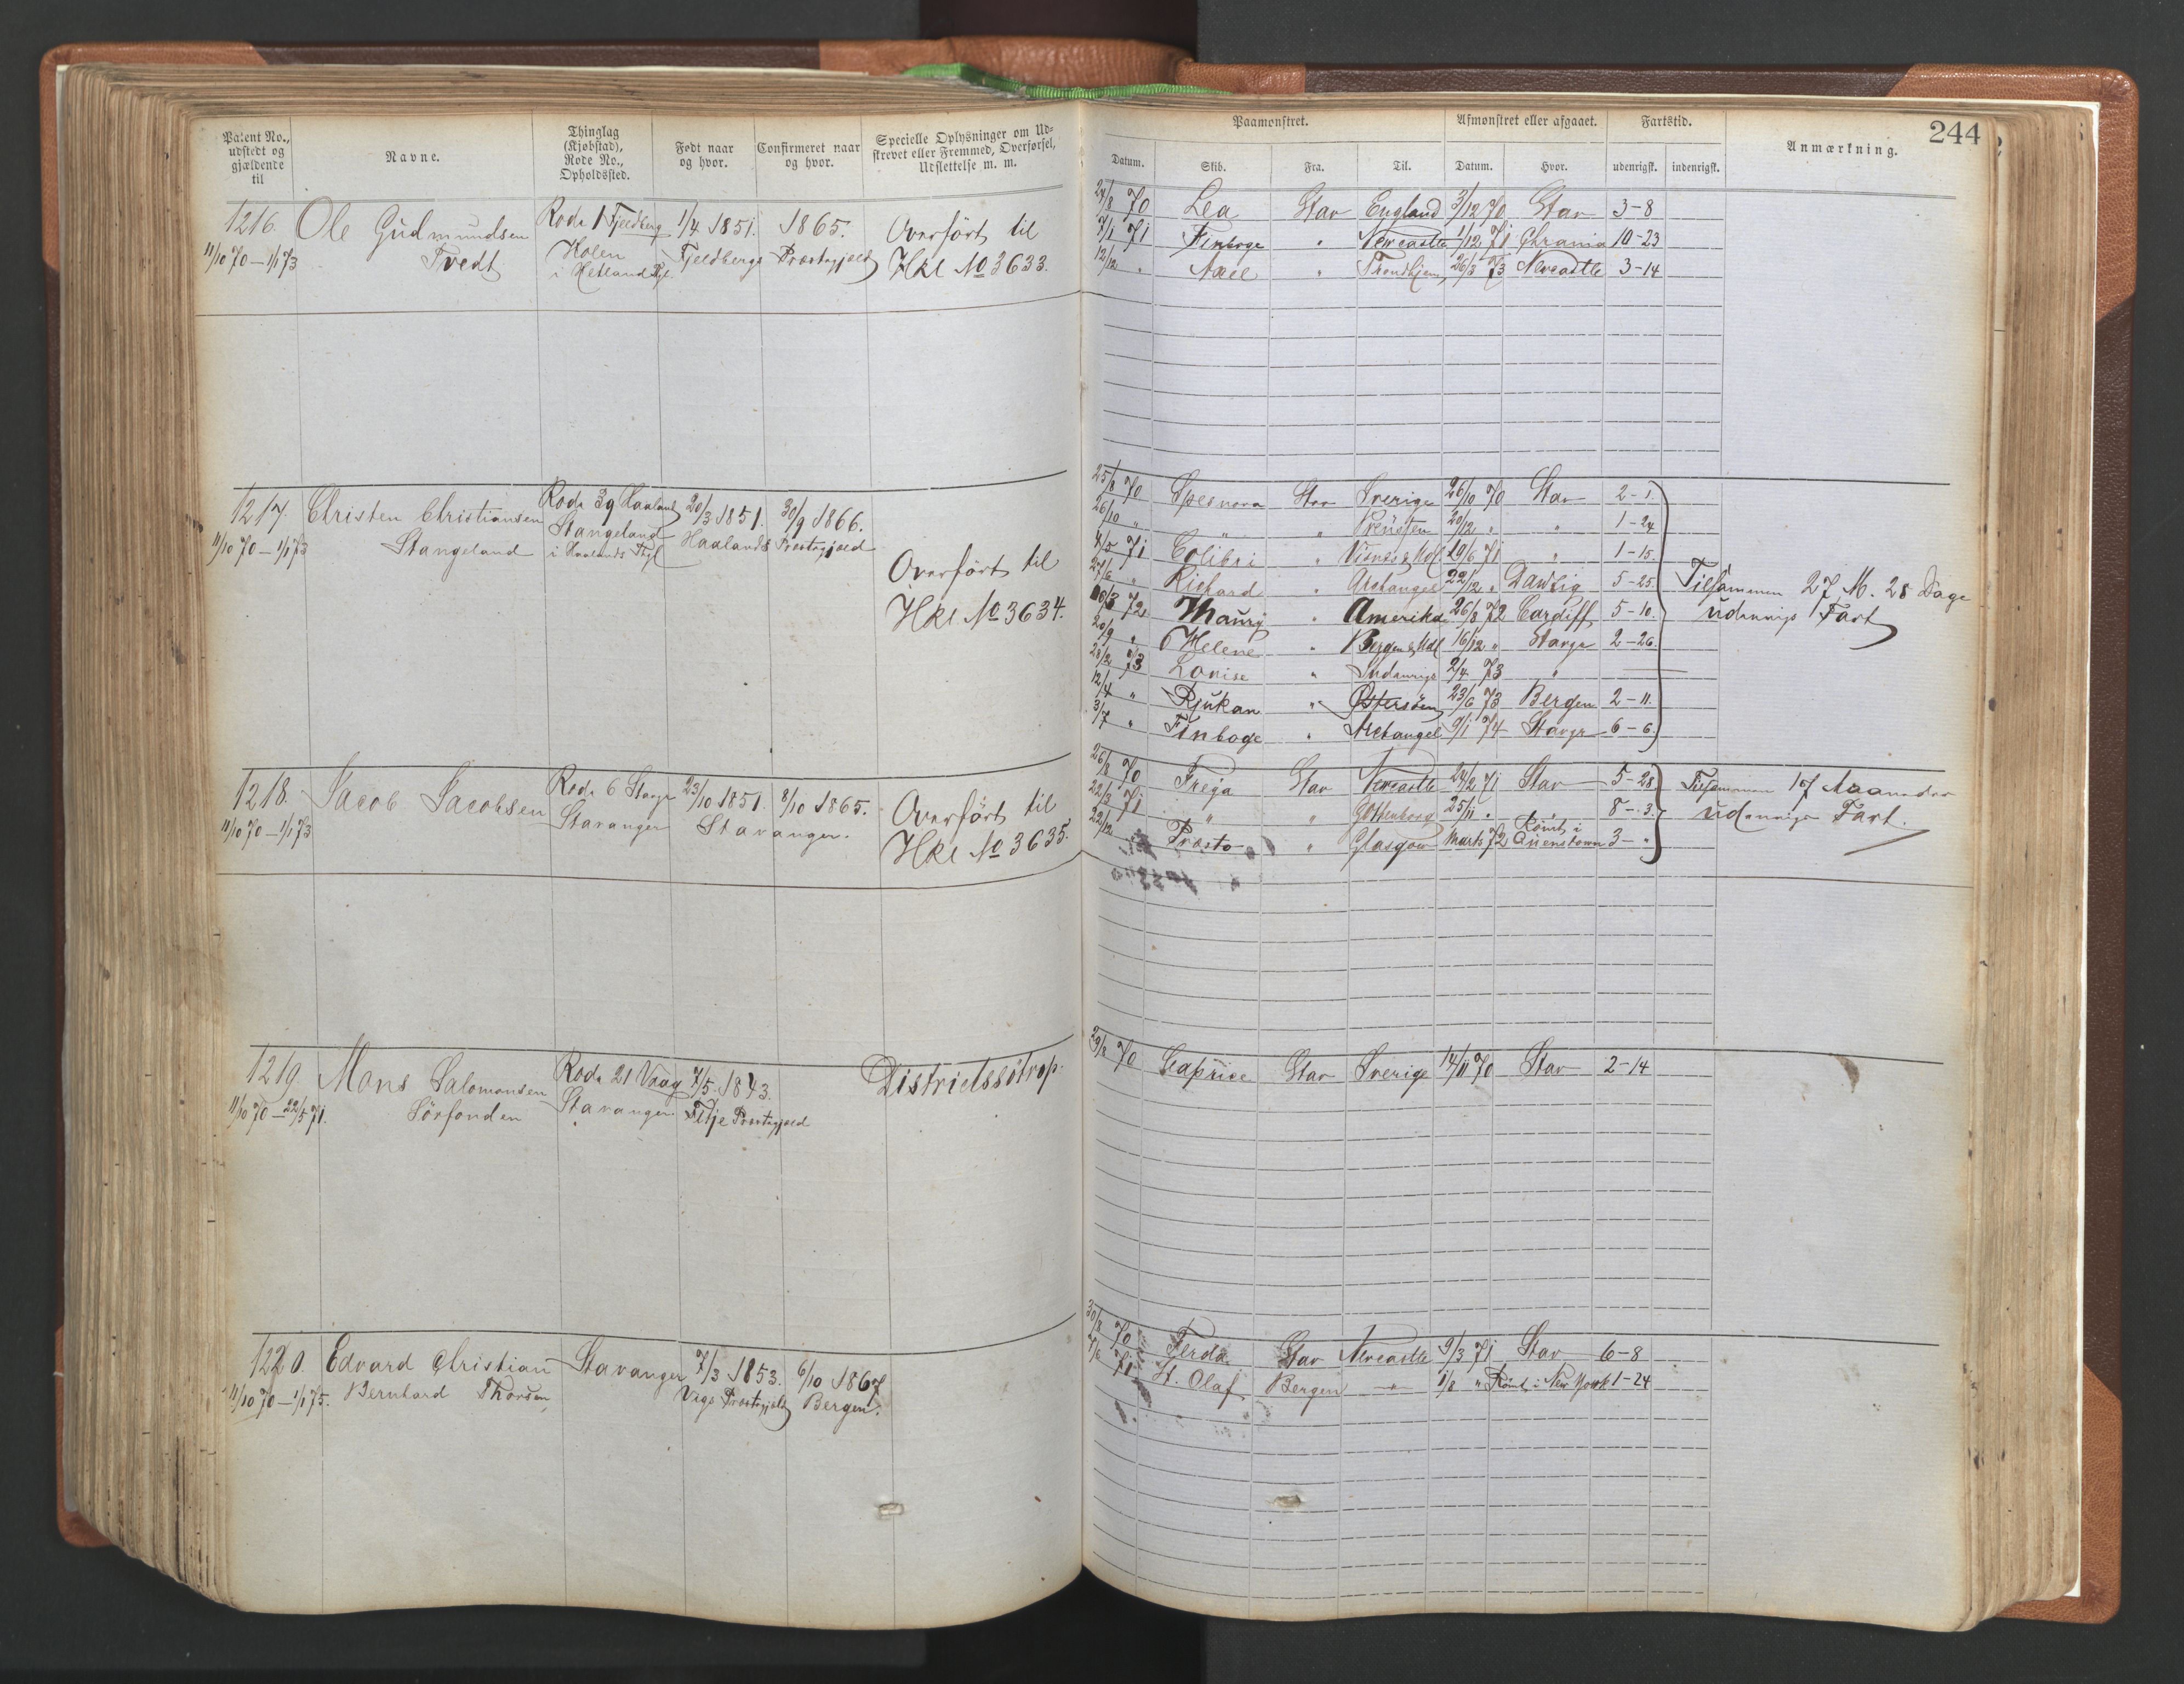 Patent No., udstedt og gjældende til
Navne.
Thinglag (Kjøbstad), Rode No., Opholdssted.
Født naar og hvor.
Confirmeret naar og hvor.
Specielle Oplysninger om Udskrevet eller Fremmed, Overførsel, Udslettelse m. m.
Paamønstret.
Afmønstret eller afgaaet.
Fartstid.
Anmærkning.
244
Datum. Skib. Fra. Til. Datum. Hvor. udenrigsk. indenrigsk.
1216. Ole Gudmundsen Rode 1 Fjeldberg 1/4 1851. 1865. Overført til
11/10 70 – 1/1 73 Tvedt Holen Fjeldbergs Præstegjeld Hkl No 3633.
i Hetland
24/8 70 Lea Stav England 3/12 70 Stav 3–8
7/1 71 Finboge " Newcastle 1/12 71 Chrania 10–23
12/12 " " Trondhjem 26/3 73 Newcastle 3–14
1217. Christen Christiansen Rode 39 Haaland 20/3 1851. 30/9 1866.
11/10 70 – 1/1 73 Stangeland Stangeland Haalands Præstegjeld
i Haalands Thgl
Overført til
Hkl No 3634.
25/8 70 Spesnova Stav Sverige 26/10 70 Stav 2–1.
26/10 " " " Preusten 20/12 " " 1–24
4/5 71 Colibri " 19/6 71 " 1–15.
27/6 " Richard " Archangel 22/12 " Danzig 5–25
10/3 72 Thaurg " Amerika 26/8 72 Cardiff 5–10.
20/9 " Helene " Bergen & Udl 16/12 " Stavgr 2–26.
28/2 73 Louise " Indenrigs 2/4 73 "
12/4 " Rjukan " Østersøen 23/6 73 Bergen 2–11.
3/7 " Finboge " Archangel 9/1 74 Stavgr 6–6
Tilsammen 27 M. 28 Dage
udenrigs Fart
1218. Jacob Jacobsen Rode 6 Stavgr 23/10 1851. 8/10 1865. Overført til
11/10 70 – 1/1 73 Stavanger Stavanger. Hkl No 3635.
26/8 70 Freja Stav Newcastle 24/2 71 Stav 5–28
22/3 71 " " Gothenborg 25/11 " 8–3
22/12 Præsto " Glasgow Marts 72 Rømt i Queenstown 3–"
Tilsammen 17 Maaneder
udenrigs Fart.
1219 Mons Salomonsen Rode 21 Vaag 7/5 1843. Districtssötrop.
11/10 70 – 22/5 71. Sörfonden Stavanger Fitje Præstegjeld
29/8 70 Caprice Stav Sverige 14/11 70 Stav 2–14
1220. Edvard Christian Stavanger 7/3 1853. 6/10 1867
11/10 70 – 1/1 75. Bernhard Thorsen Vags Præstegjeld Bergen.
30/8 70 Ferda Stav Newcastle 9/3 71 Stav 6–8
7/6 71 St. Olaf Bergen — " — 1/8 " Rømt i New York 1–24